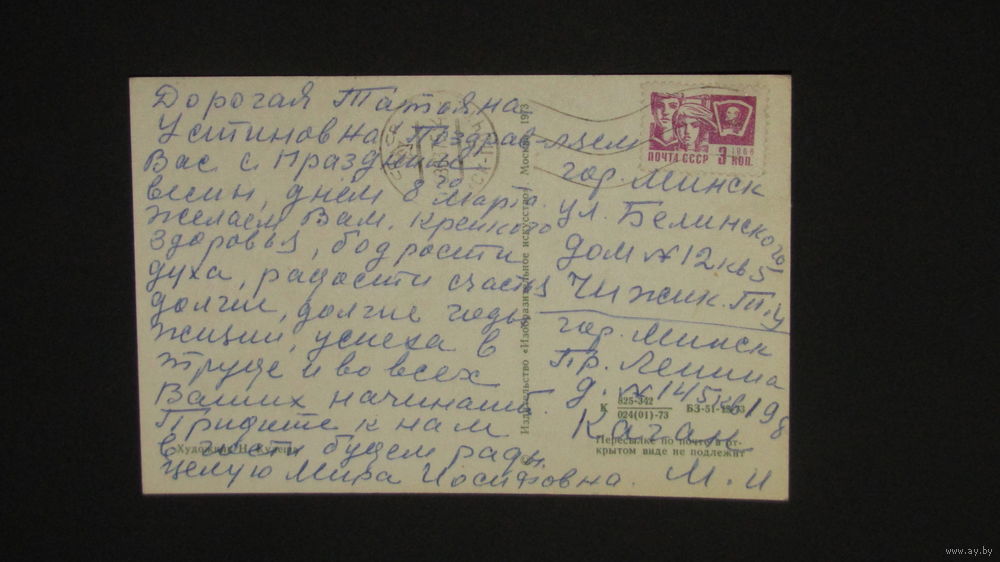 Дорогая Татьяна
Устиновна Поздрав-
Вас с Праздником
весны, днём 8го Марта.
желаем Вам, крепкого
здоровья, бодрости
духа, радости счастья
долгие, долгие годы
жизни, успеха в
труде и во всех
Ваших начинаний.
Придите к нам
в гости будем рады.
Целую Мира Иосифовна.
ляем
гор. Минск
ул. Белинского
дом № 12 кв 5
Чижик. Т.У
гор. Минск
Пр. Ленина
д. № 145 кв 198
Каган
М. И
ПОЧТА СССР 3 КОП.
1966
© Издательство «Изобразительное искусство». Москва. 1973
К 825-342
024(01)-73
БЗ-51-19-73
Пересылке по почте в от-
крытом виде не подлежит
Художник Н.
www.ay.by